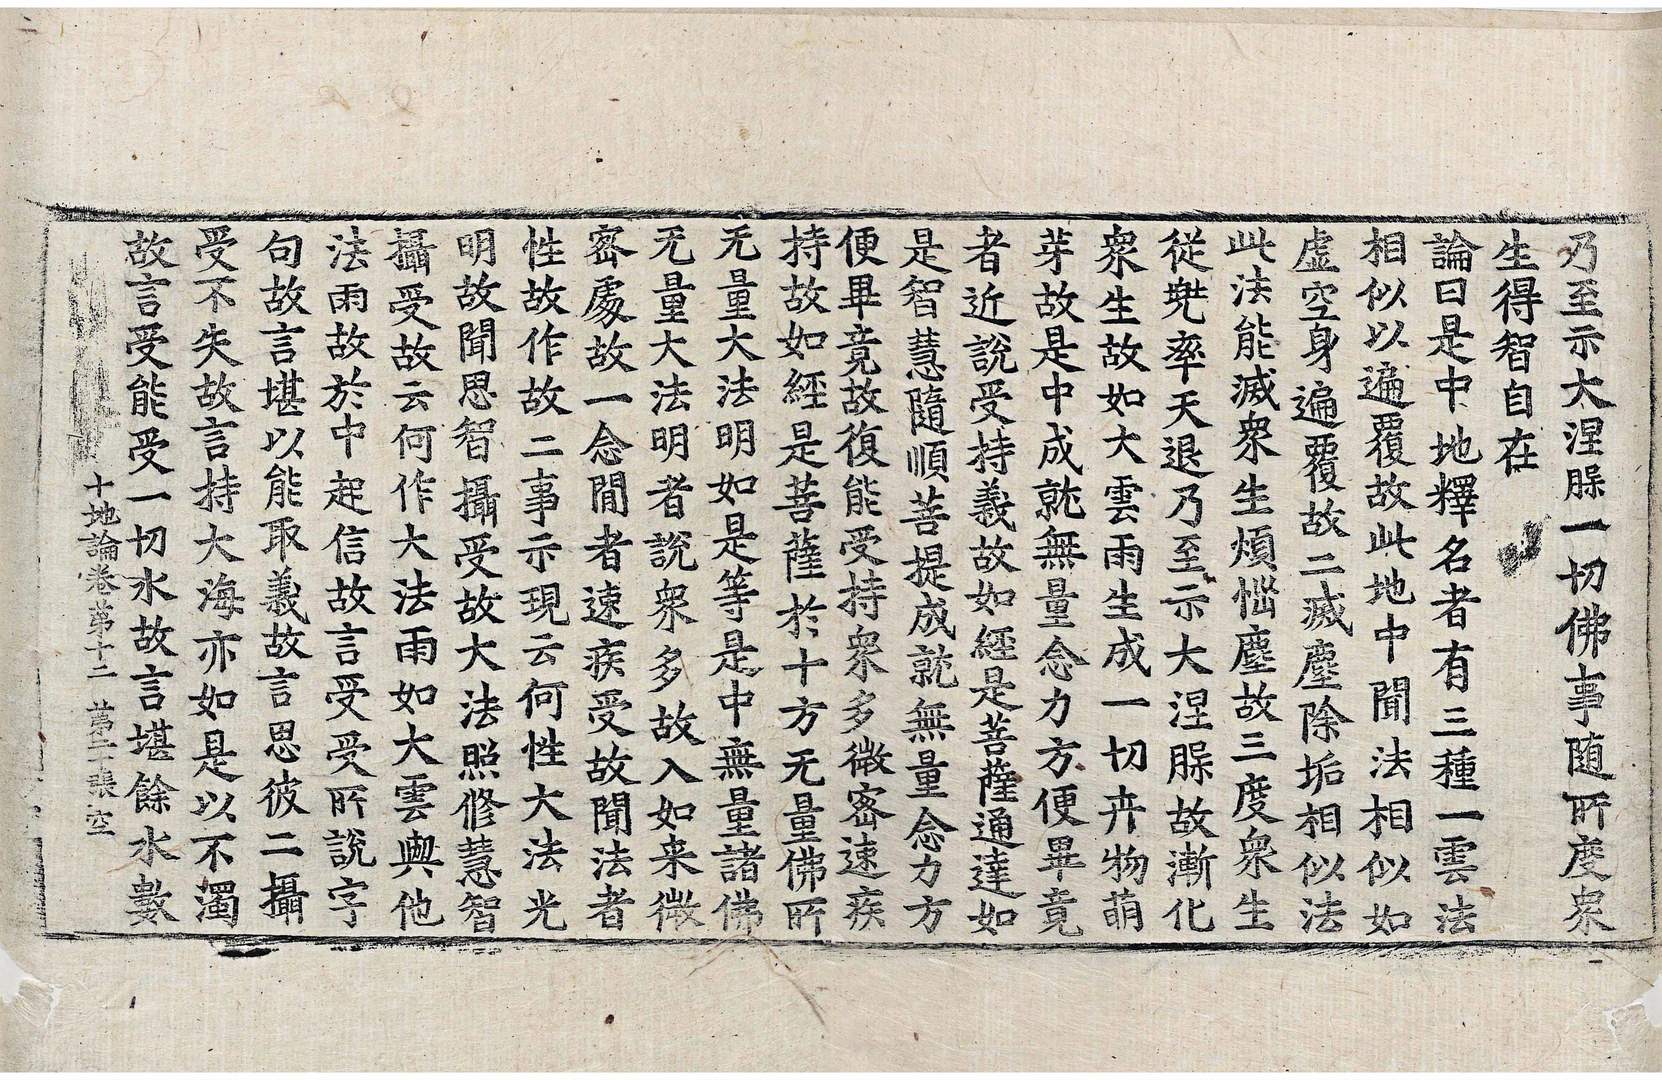 乃至示大涅脲一切佛事随所度衆
生得智自在
論曰是中地釋名者有三種一雲法
相似以遍覆故此地中聞法相似如
虛空身遍覆故二滅塵除垢相似法
此法能滅衆生煩惱塵故三度衆生
從兠率天退乃至示大涅脲故漸化
衆生故如大雲雨生成一切卉物萌
芽故是中成就無量念力方便畢竟
者近說受持義故如經是菩薩通達如
是智慧隨順菩提成就無量念力方
便畢竟故復能受持衆多微宻速疾
持故如經是菩薩於十方无量佛所
无量大法明如是等是中無量諸佛
无量大法明者說衆多故入如来微
宻處故一念閒者速疾受故聞法者
性故作故二事示現云何性大法光
明故聞思智攝受故大法照修慧智
攝受故云何作大法雨如大雲與他
法雨故於中起信故言受受所說字
句故言堪以能取義故言思彼二攝
受不失故言持大海亦如是以不濁
故言受能受一切水故言堪餘水數
十地論卷第十二 第二十張 空